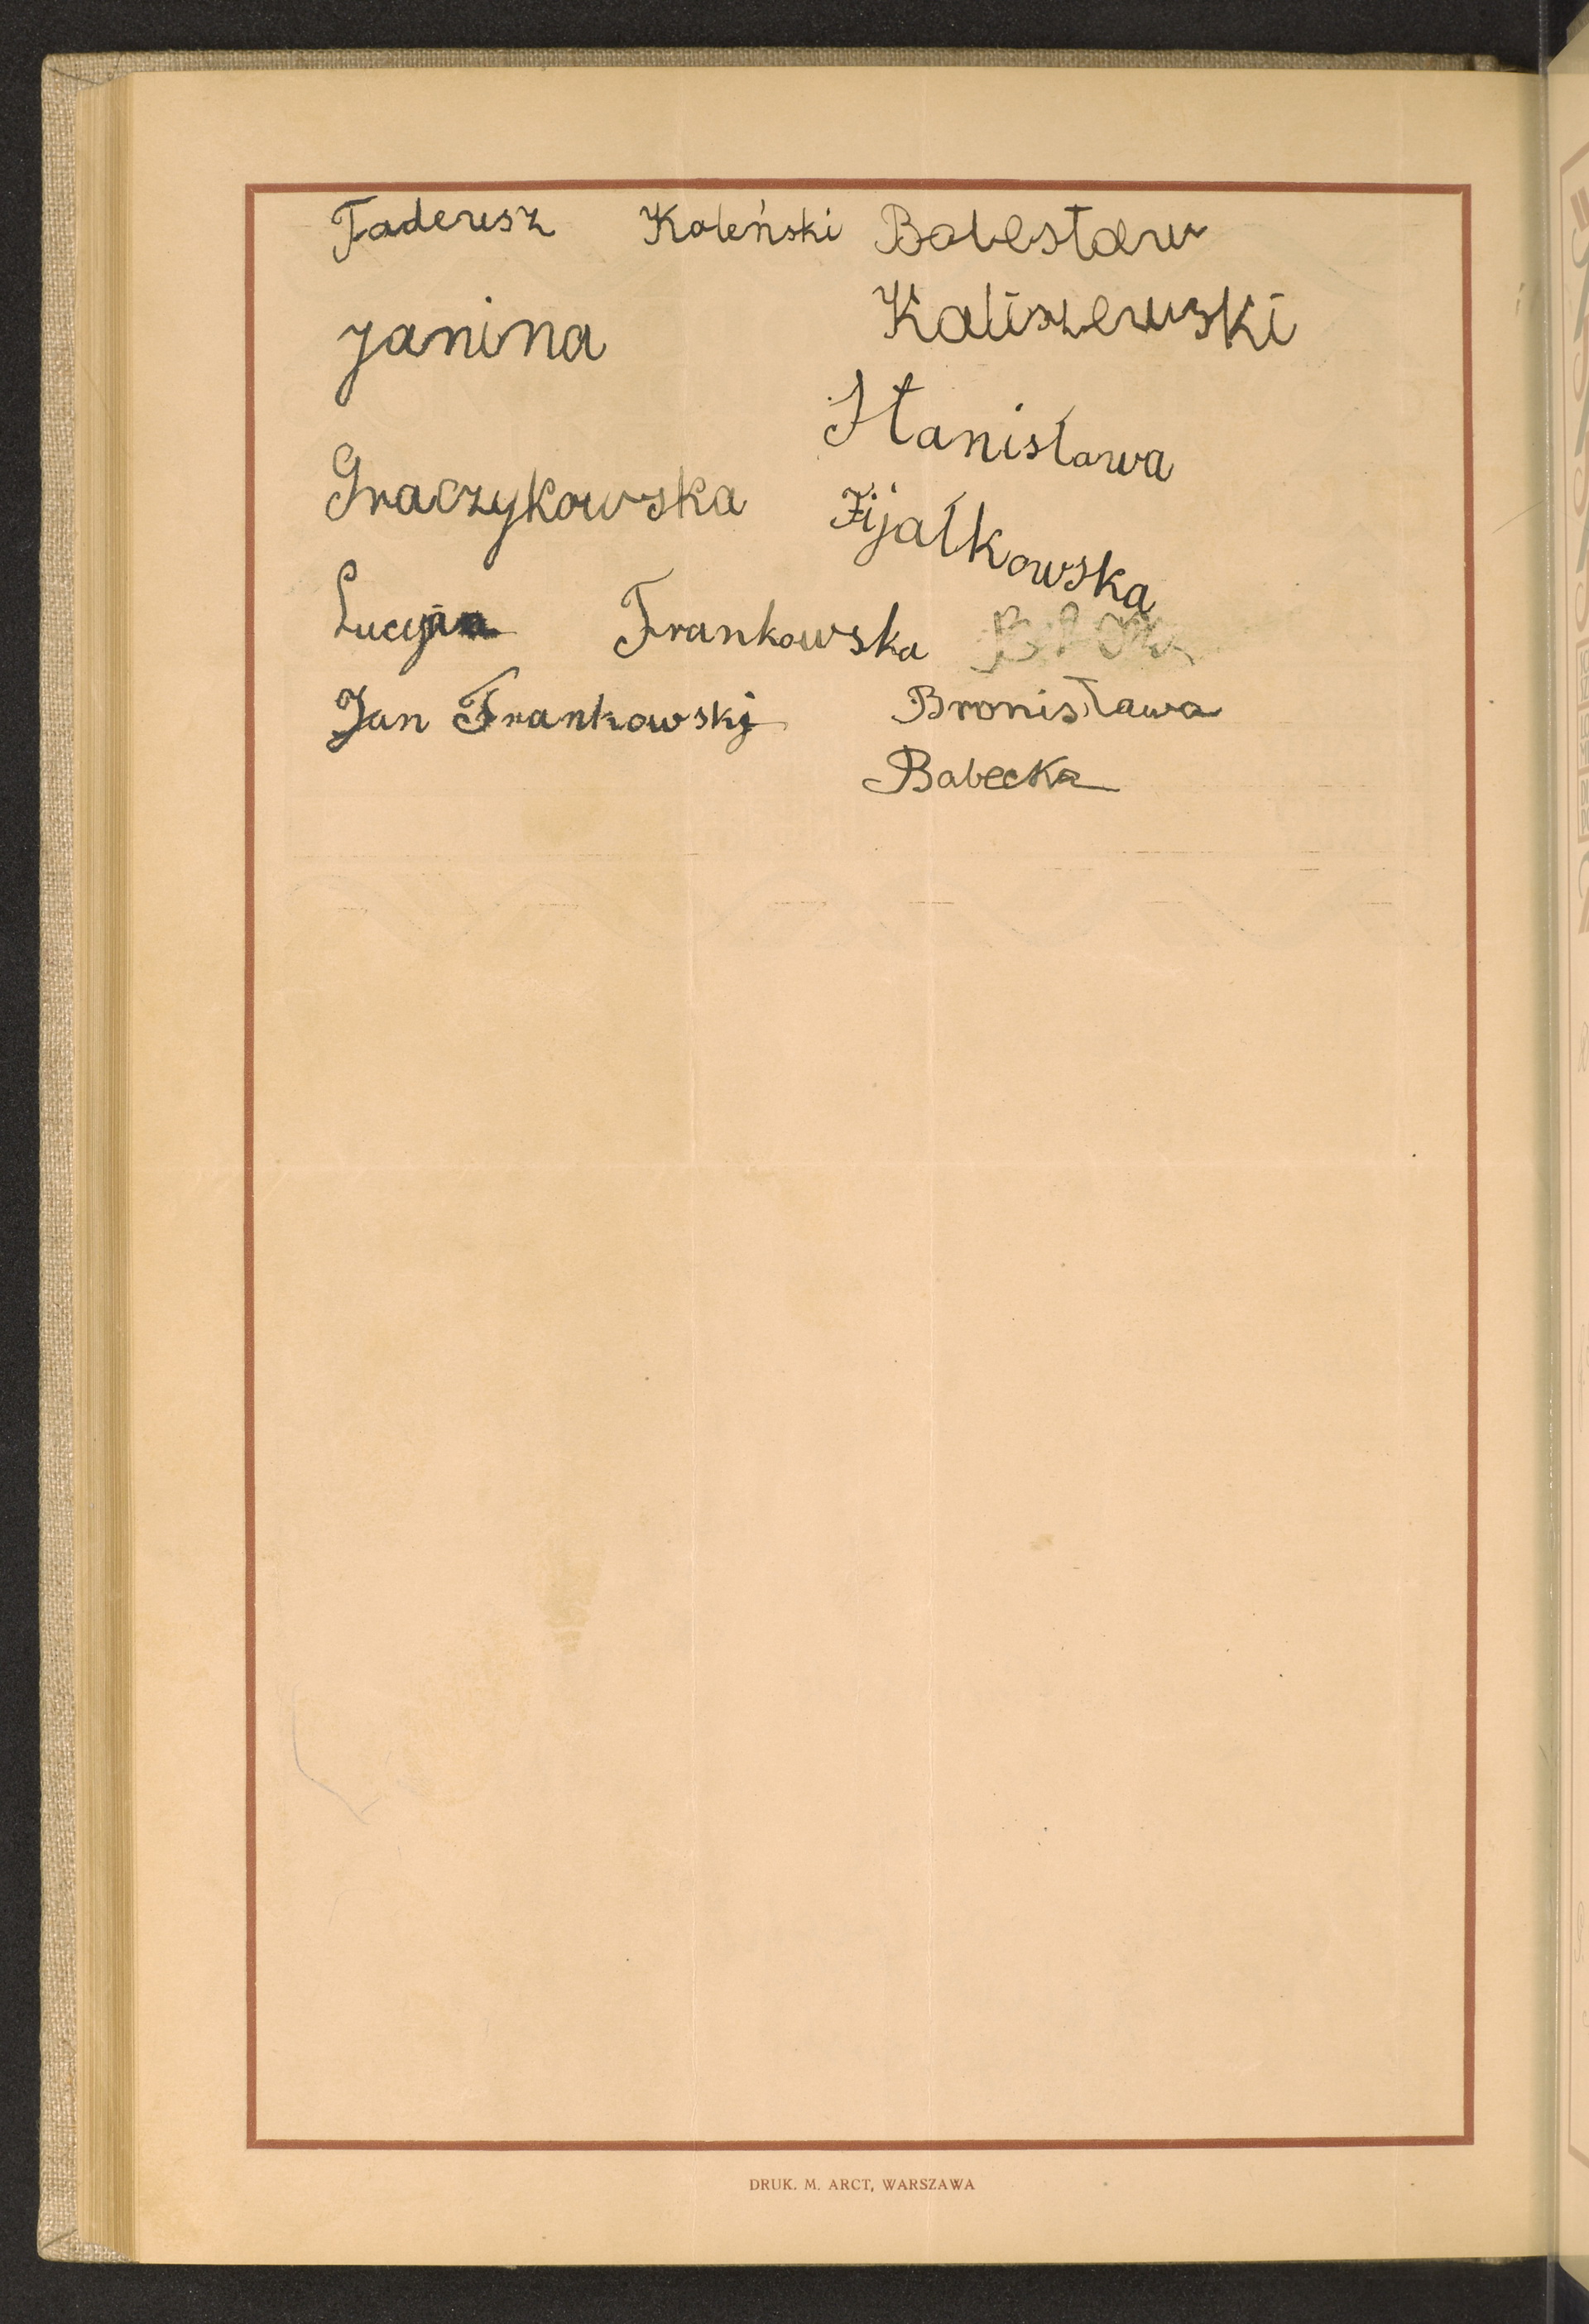 Tadeusz Koleński
Janina
Graczykowska
Lucyna Frankowska
Jan Frankowski
Bolesław
Kaliszewski
Stanisława
Fijałkowska
Bronisława
Babecka
DRUK. M. ARCT, WARSZAWA